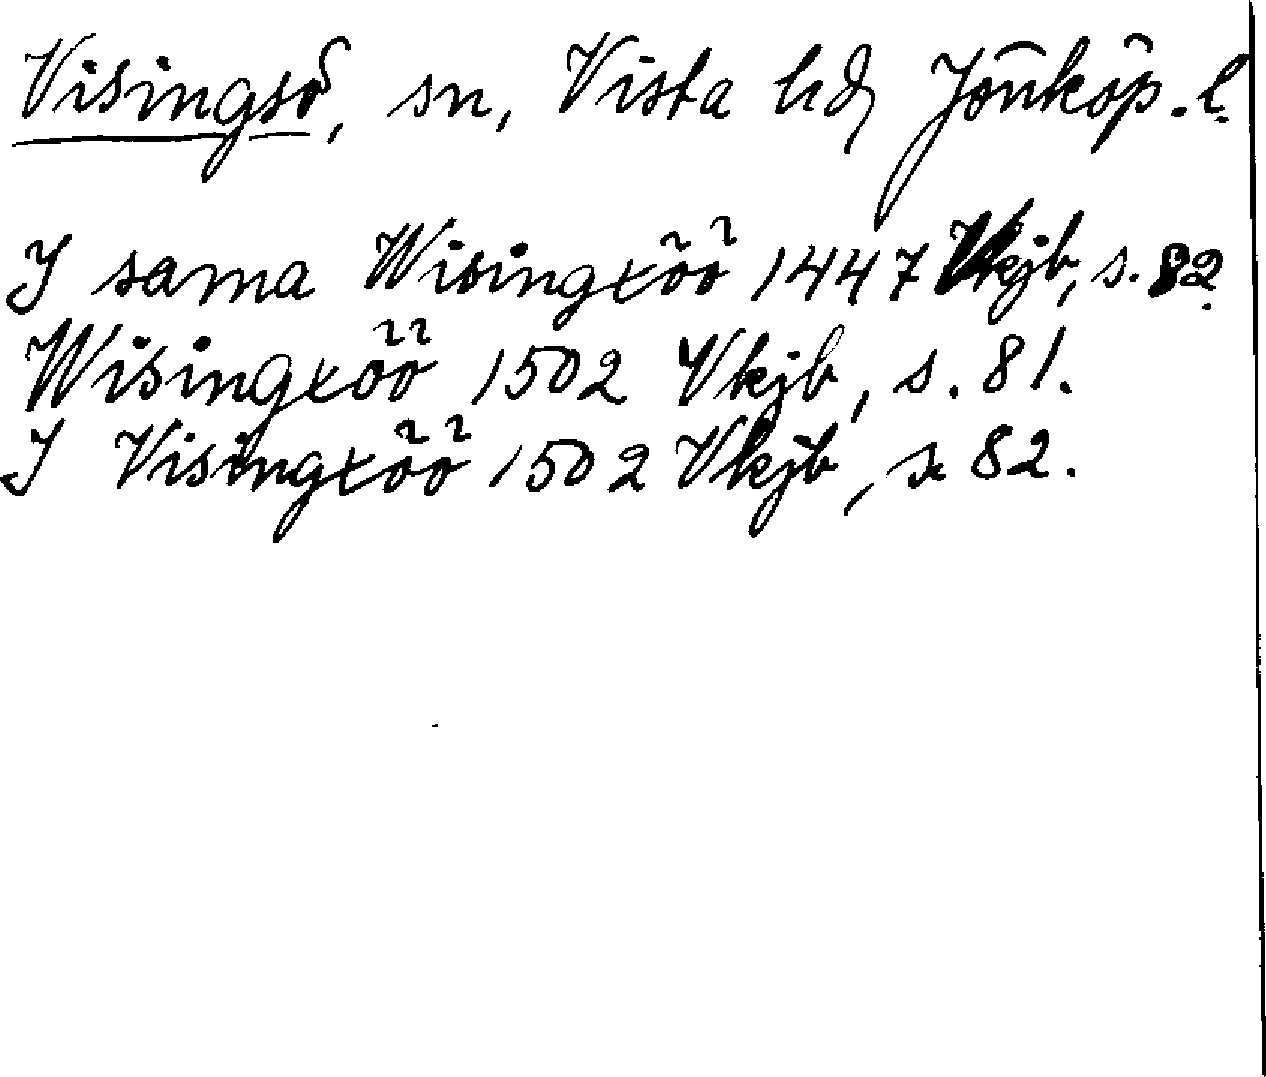 Visingsö, sn, Vista hd, Jönköp. l.
I sama Wisingxöö 1447 Vkjb, s. 82.
Wisingxöö 1502 Vkjb, s. 81.
I Visingxöö 1502 Vkjb, s. 82.